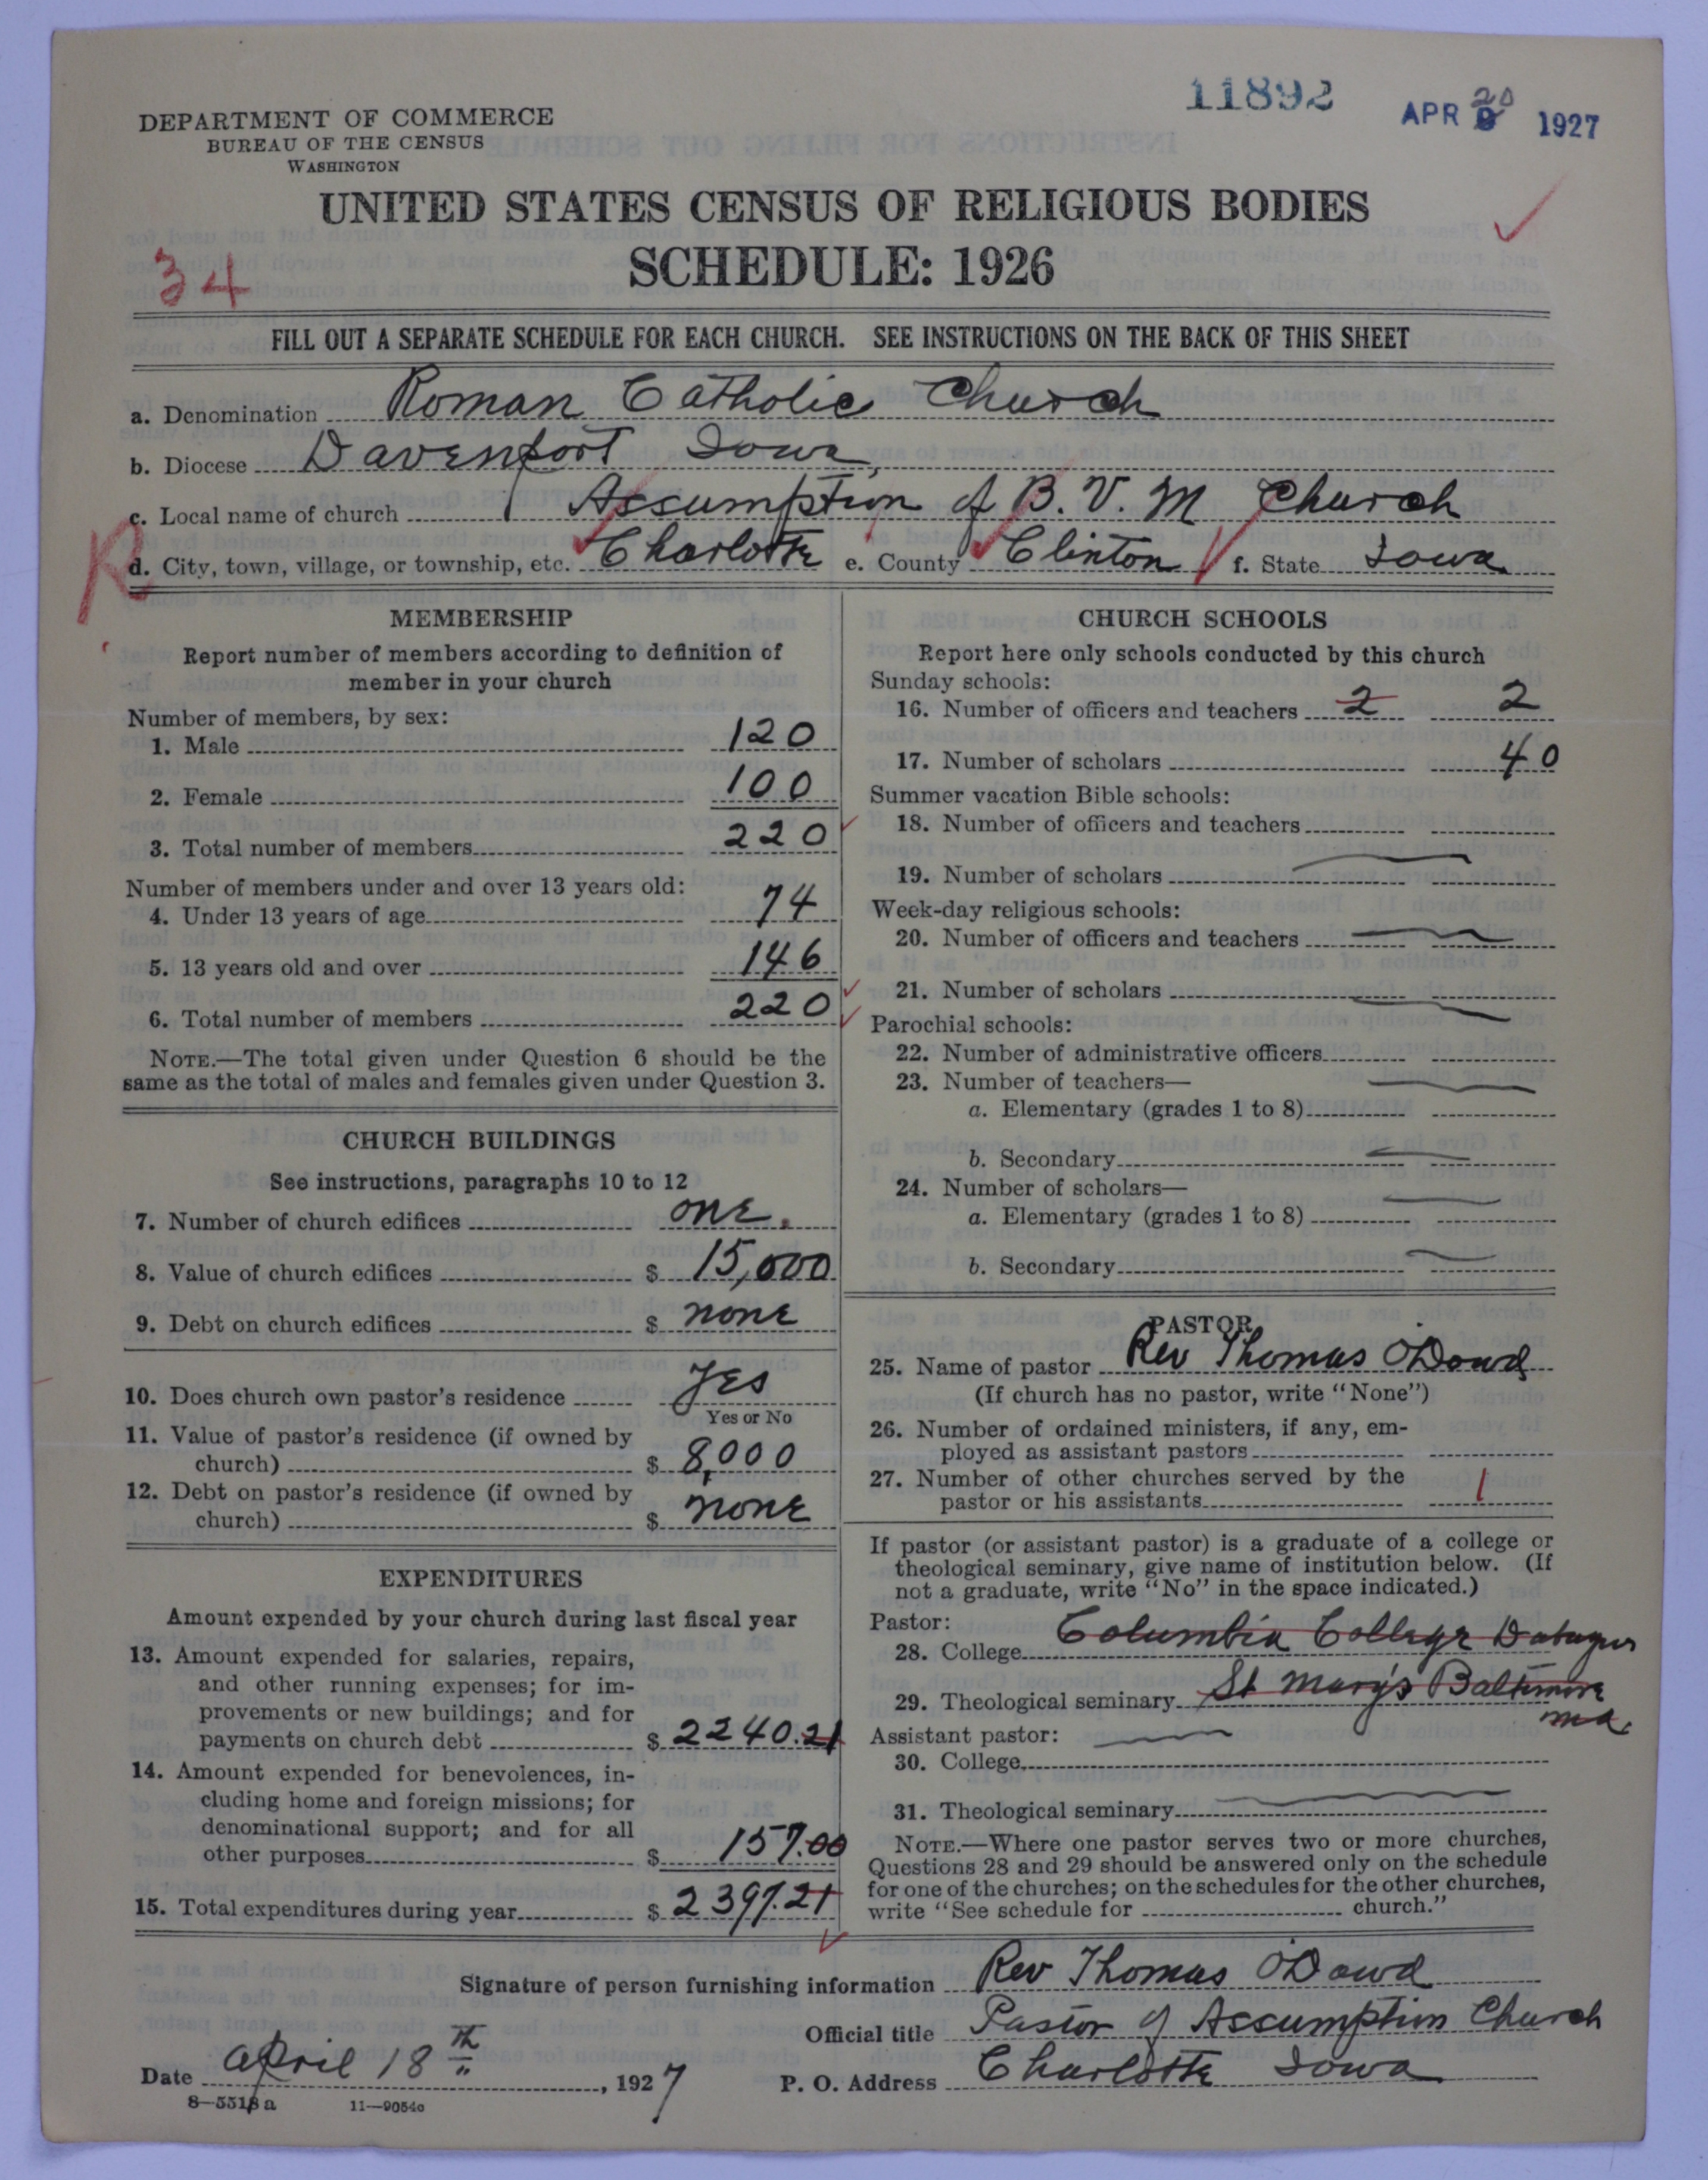 11892
APR 20 1927
DEPARTMENT OF COMMERCE
BUREAU OF THE CENSUS
WASHINGTON
UNITED STATES CENSUS OF RELIGIOUS BODIES
SCHEDULE: 1926
34
FILL OUT A SEPARATE SCHEDULE FOR EACH CHURCH. SEE INSTRUCTIONS ON THE BACK OF THIS SHEET
a. Denomination Roman Catholic Church
b. Diocese Davenport Iowa
c. Local name of church Assumption of B. V. M Church
R
d. City, town, village, or township, etc. Charlotte e. County Clinton f. State Iowa
MEMBERSHIP
Report number of members according to definition of
member in your church
Number of members, by sex:
1. Male 120
2. Female 100
3. Total number of members 220
Number of members under and over 13 years old:
4. Under 13 years of age 74
5. 13 years old and over 146
6. Total number of members 220
NOTE.—The total given under Question 6 should be the
same as the total of males and females given under Question 3.
CHURCH BUILDINGS
See instructions, paragraphs 10 to 12
7. Number of church edifices one.
8. Value of church edifices $ 15,000
9. Debt on church edifices $ none
10. Does church own pastor's residence Yes
Yes or No
11. Value of pastor's residence (if owned by
church) $ 8,000
12. Debt on pastor's residence (if owned by
church) $ none
EXPENDITURES
Amount expended by your church during last fiscal year
13. Amount expended for salaries, repairs,
and other running expenses; for im-
provements or new buildings; and for
payments on church debt $ 2240.21
14. Amount expended for benevolences, in-
cluding home and foreign missions; for
denominational support; and for all
other purposes $ 157.00
15. Total expenditures during year $ 2397.21
CHURCH SCHOOLS
Report here only schools conducted by this church
Sunday schools:
16. Number of officers and teachers 2 2
17. Number of scholars 40
Summer vacation Bible schools:
18. Number of officers and teachers
19. Number of scholars
Week-day religious schools:
20. Number of officers and teachers
21. Number of scholars
Parochial schools:
22. Number of administrative officers
23. Number of teachers—
a. Elementary (grades 1 to 8)
b. Secondary
24. Number of scholars—
a. Elementary (grades 1 to 8)
b. Secondary
PASTOR
25. Name of pastor Rev Thomas O'Dowd
(If church has no pastor, write "None")
26. Number of ordained ministers, if any, em-
ployed as assistant pastors
27. Number of other churches served by the
pastor or his assistants 1
If pastor (or assistant pastor) is a graduate of a college or
theological seminary, give name of institution below. (If
not a graduate, write "No" in the space indicated.)
Pastor:
28. College Columbia College
29. Theological seminary St Mary's Baltimore
Md.
Assistant pastor:
30. College
31. Theological seminary
NOTE.—Where one pastor serves two or more churches,
Questions 28 and 29 should be answered only on the schedule
for one of the churches; on the schedules for the other churches,
write "See schedule for church."
Signature of person furnishing information Rev Thomas O'Dowd
Official title Pastor of Assumption Church
Date April 18th, 1927 P. O. Address Charlotte Iowa
8—5518a 11—9054c